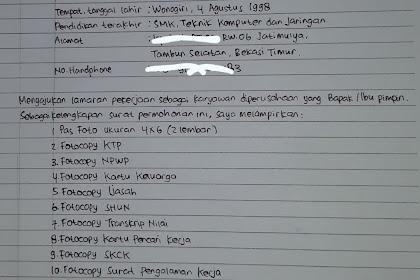 Tempat, tanggal lahir : Wonogiri, 4 Agustus 1998
Pendidikan terakhir : SMK, Teknik Komputer dan Jaringan
Alamat : RW.06 Jatimulya,
Tambun Selatan, Bekasi Timur.
No. Handphone : 83
Mengajukan lamaran pekerjaan sebagai karyawan diperusahaan yang Bapak/Ibu pimpin.
Sebagai kelengkapan surat permohonan ini, saya melampirkan:
1 Pas Foto ukuran 4x6 (2 lembar)
2 Fotocopy KTP
3. Fotocopy NPWP
4. Fotocopy Kartu Keluarga
5. Fotocopy Ijasah
6. Fotocopy SHUN
7. Fotocopy Transkrip Nilai
8. Fotocopy Kartu Pencari Kerja
9. Fotocopy SKCK
10. Fotocopy Surat Pengalaman Kerja